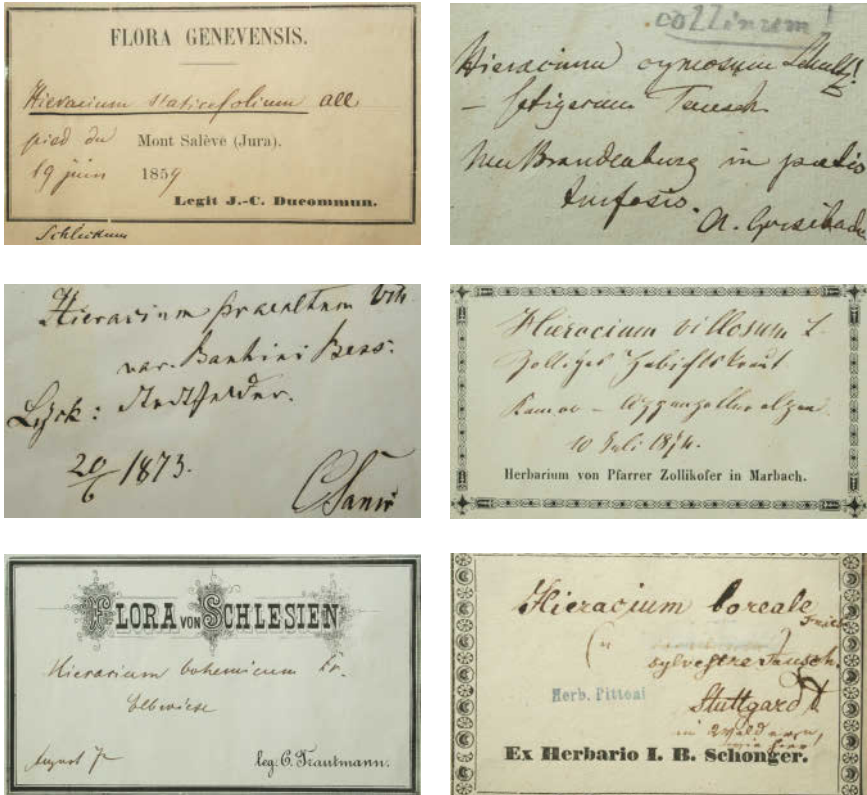 FLORA GENEVENSIS.
Hieracium staticefolium all
pied du Mont Salève (Jura).
19 juin 1859
Legit J.-C. Ducommun.
collinum!
Hieracium cymosum Schultz!
— setigerum Tausch.
NeuBrandenburg in
A. Grisebach
Hieracium praealtum Vill.
var. Bauhini Bess:
Lyck:
20/6 1873.
C Sanio
Hieracium villosum L.
Zottiges Habichtskraut
Kamor – Appenzelleralpen
10 Juli 1874.
Herbarium von Pfarrer Zollikofer in Marbach.
FLORA VON SCHLESIEN
Hieracium bohemicum Fr.
Elbwiese
August 7
leg. C. Trautmann.
Hieracium boreale Fries
sylvestre Tausch.
Herb. Pittoni
Stuttgard
in Wäldern,
Ex Herbario I. B. Schonger.